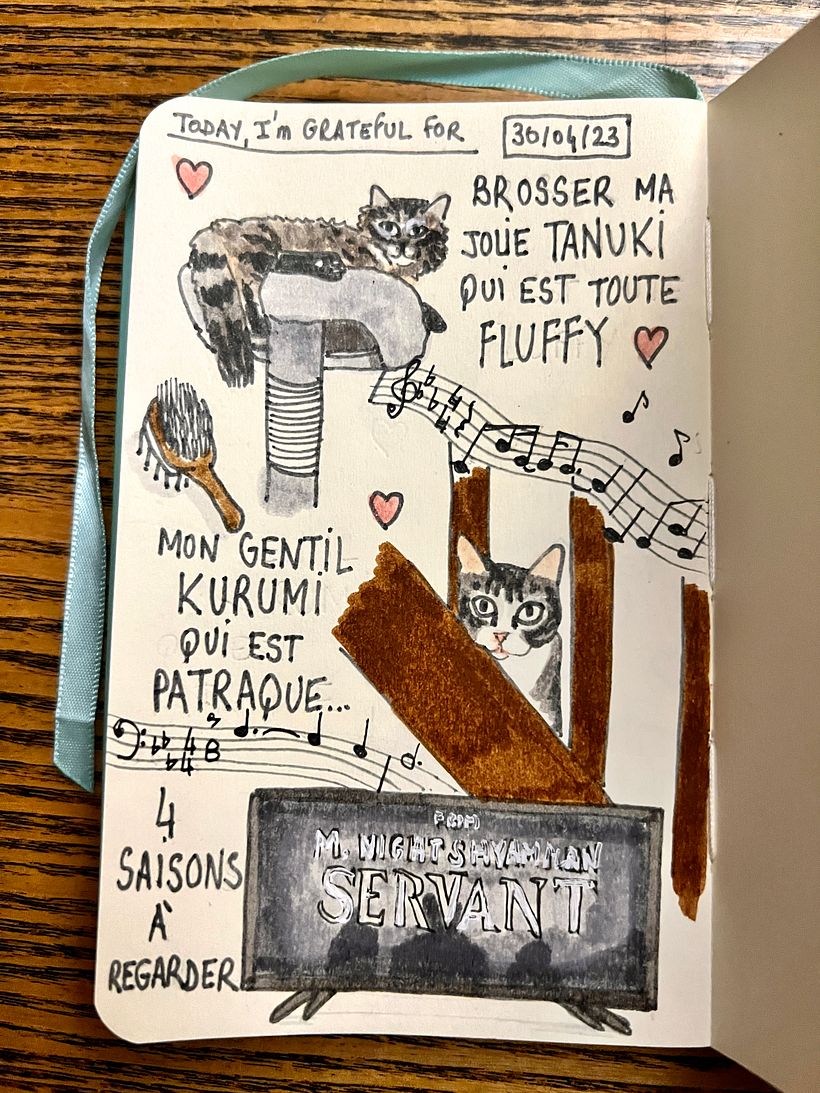 TODAY, I'm GRATEFUL FOR
30/04/23
BROSSER MA
JOLIE TANUKI
QUI EST TOUTE
FLUFFY
MON GENTIL
KURUMI
QUI EST
PATRAQUE...
4
SAISONS
À
REGARDER
FROM
M. NIGHT SHYAMALAN
SERVANT